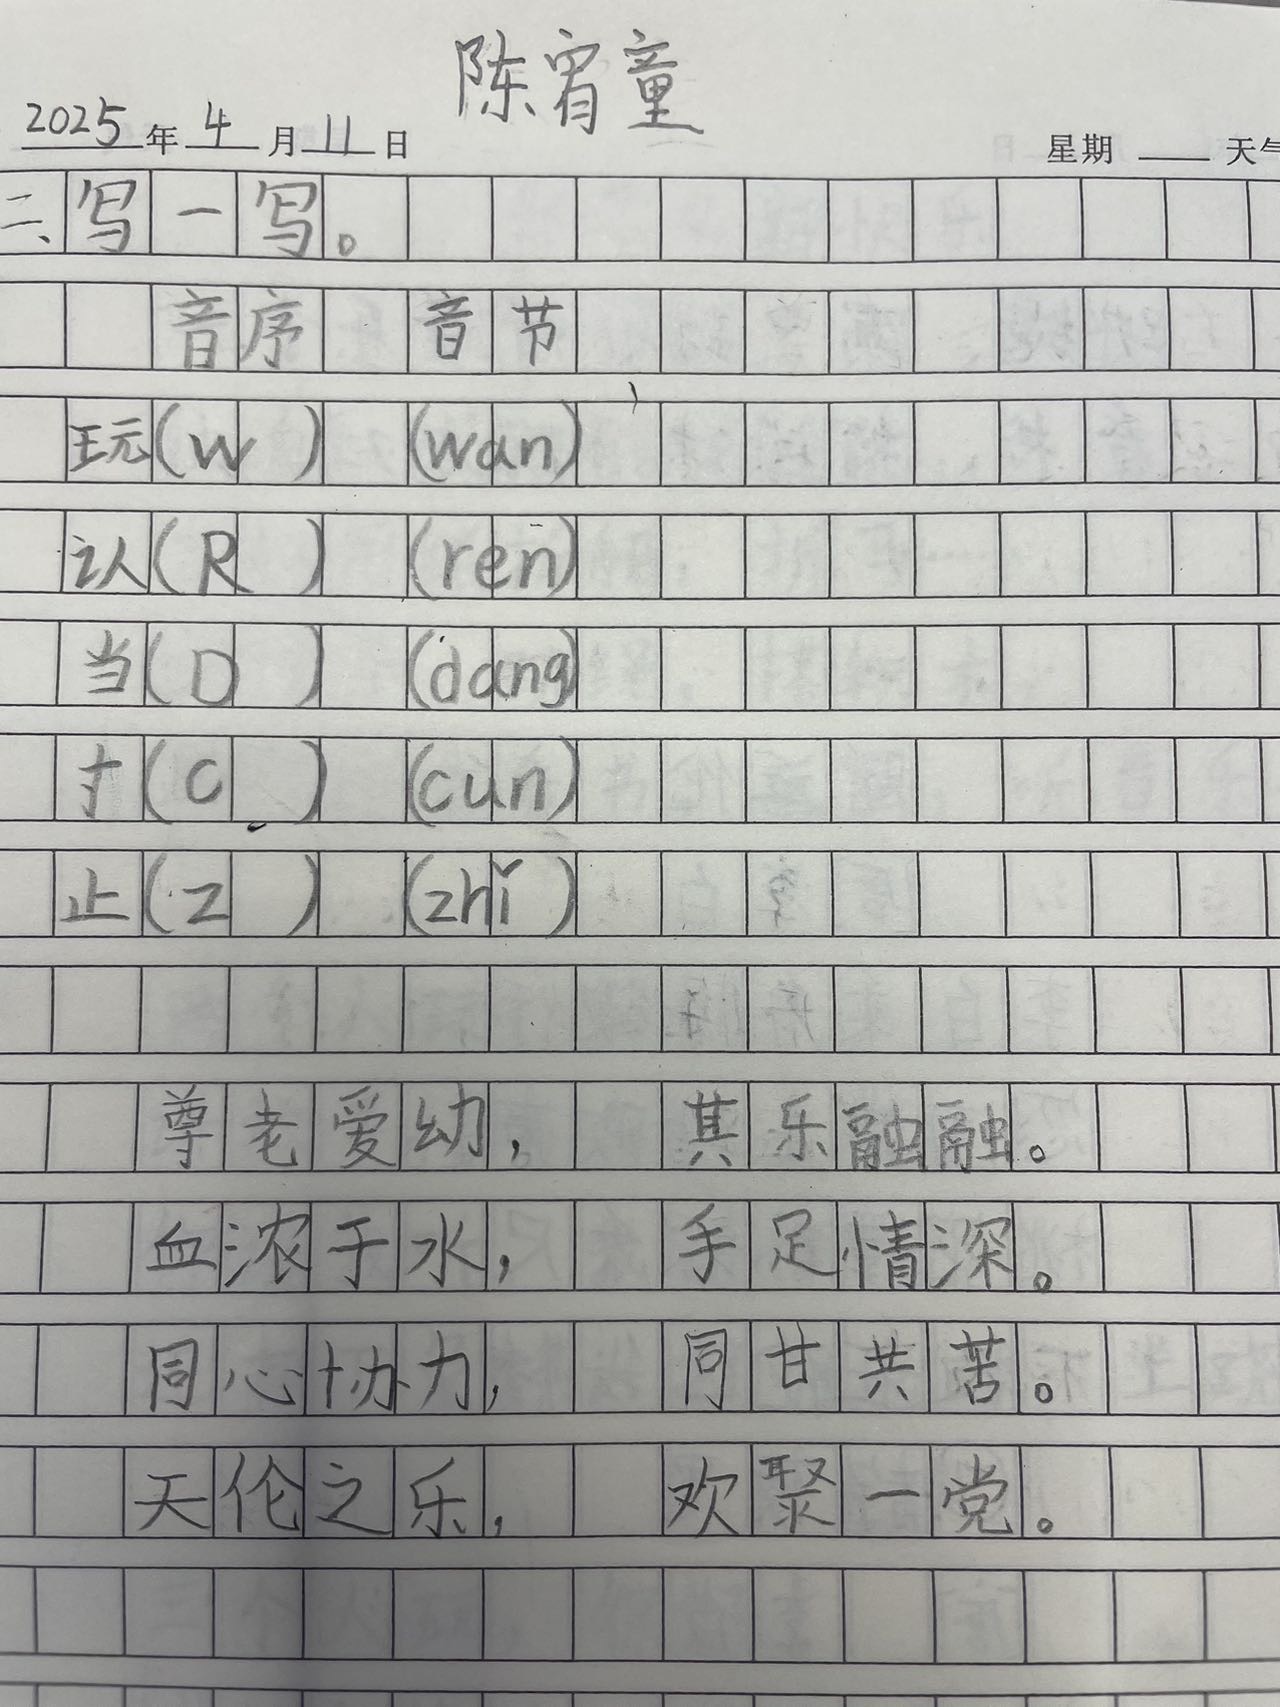 陈宥童
2025年4月11日 星期 天气
二、写一写。
音序 音节
玩(W) (wan)
认(R) (ren)
当(D) (dang)
寸(C) (cun)
止(Z) (zhǐ)
尊老爱幼, 其乐融融。
血浓于水, 手足情深。
同心协力, 同甘共苦。
天伦之乐, 欢聚一党。